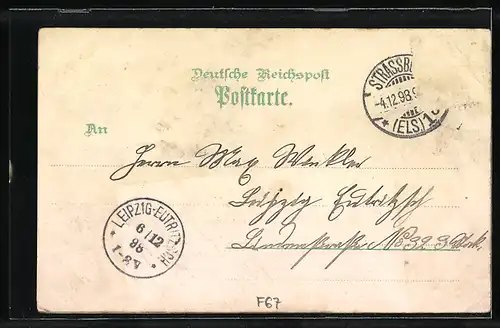 Deutsche Reichspost
Postkarte.
STRASSB
-4.12.98.9
* (ELS) 1
An
Herrn Max Winkler
Leipzig Eutritzsch
Lindenstraße No 32 3
LEIPZIG-EUTRITZSCH
6/12
98
1-2V
F67